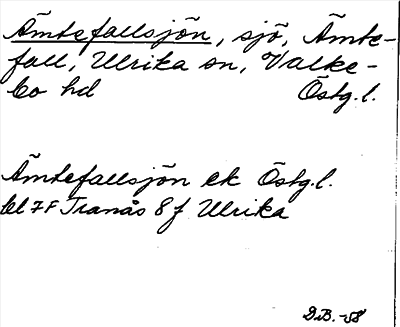 Ämtefallsjön, sjö, Ämte-
fall, Ulrika sn, Valke-
bo hd Östg.l.
Ämtefallsjön ek Östg.l.
bl 7F Tranås 8 f Ulrika
D.B. -58